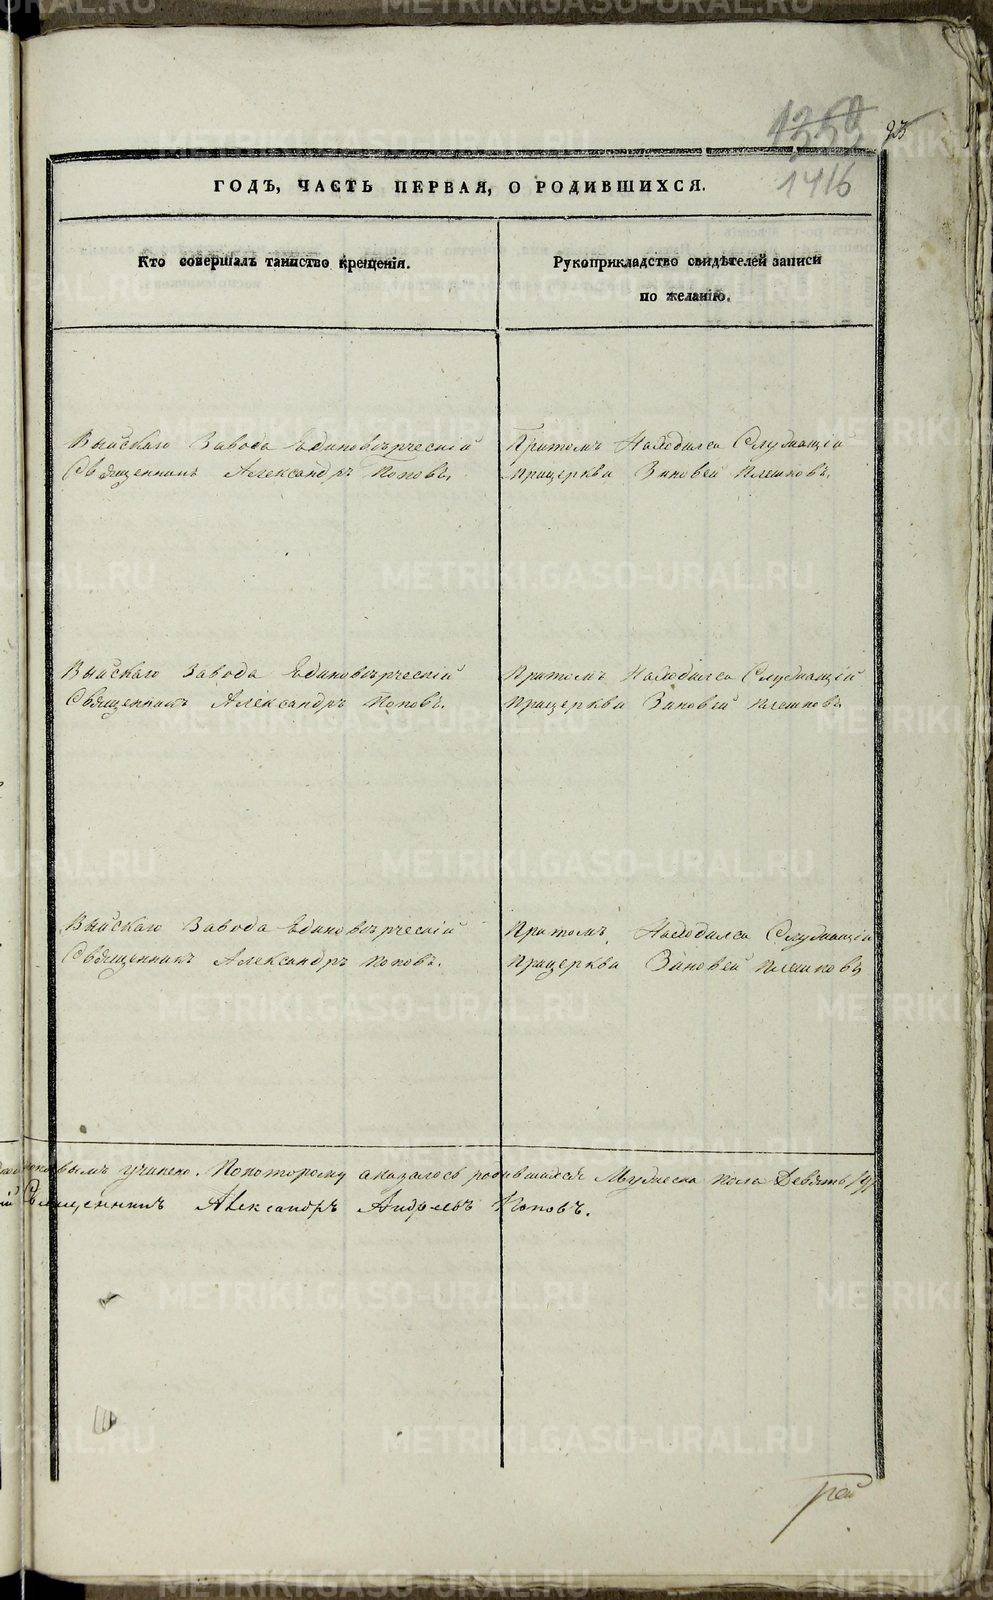 1359 93
1416
ГОДЪ, ЧАСТЬ ПЕРВАЯ, О РОДИВШИХСЯ.
Кто совершалъ таинство крещенія.
Рукоприкладство свидѣтелей записи
по желанію.
Выйскаго Завода Единовѣрческій
Священникъ Александръ Поповъ.
Притомъ Находился Служащій
прицеркви Зиновей Плешковъ.
Выйскаго Завода Единовѣрческій
Священникъ Александръ Поповъ.
Притомъ Находился Служащій
прицеркви Зиновей Плешковъ
Выйскаго Завода Единовѣрческій
Священникъ Александръ Поповъ.
Притомъ Находился Служащій
прицеркви Зиновей Плешковъ
учинено. Покоторому аказалось родившихся Мужеска пола Девять /9/
Священникъ Александръ Андреевъ Поповъ.
METRIKI.GASO-URAL.RU